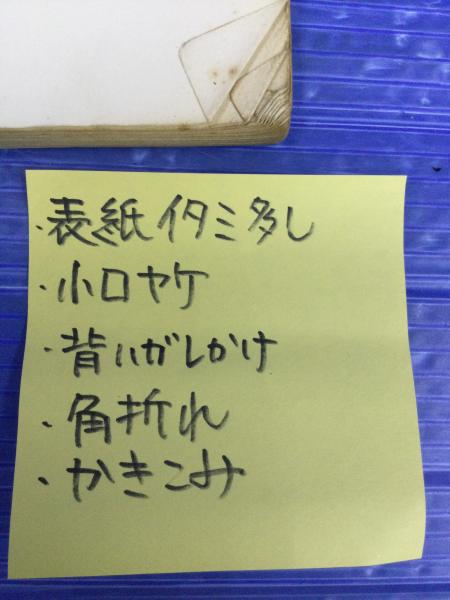 ・表紙イタミ多し
・小口ヤケ
・背ハガシかけ
・角折れ
・かきこみ